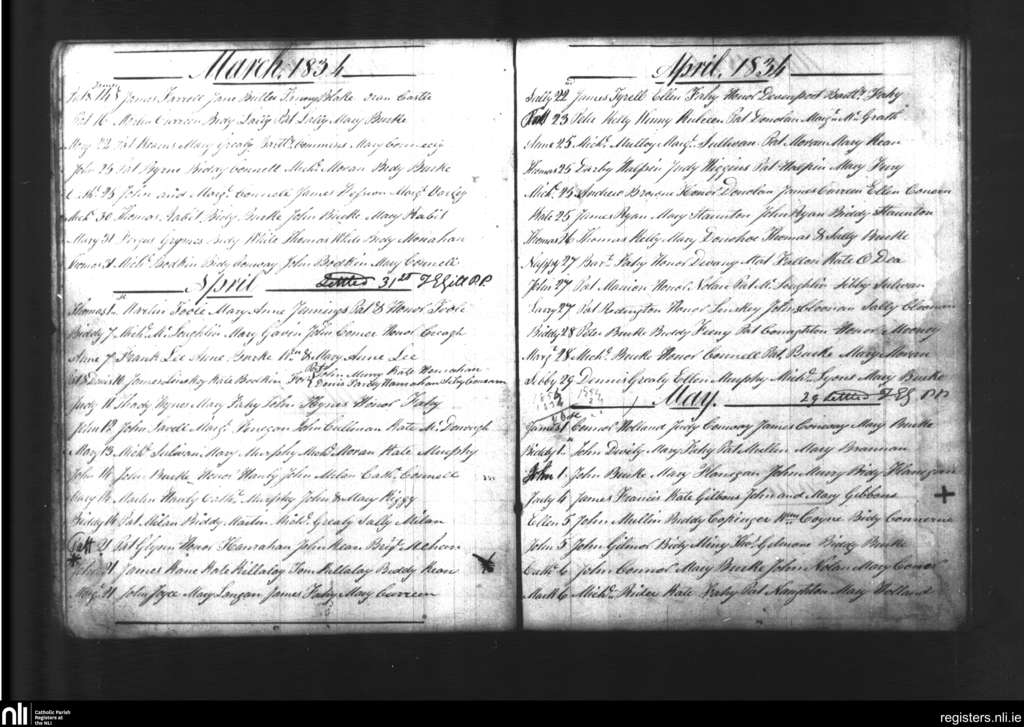 March, 1834
James Farrell Jane Butler Blake Jean Carter
Pat 16 Martin Curreen Bidy Daily Pat Daily Mary Burke
Mary 22 Pat Kearns Mary Grealy Bartw. Commins Mary Conneely
John 25 Pat Byrne Biddy Connell Michl. Moran Bidy Burke
25 John and Margt. Connell James Margt.
Mick 30 Thomas Habit Bidy Burke John Burke Mary Habit
Mary 31 Bidy White Thomas White Bidy Monahan
31 Michl. Bodkin Bidy Conway John Bodkin Mary Connell
April Settled 31st P.P.
Thomas 1st Martin Toole Mary Anne Jennings Pat & Honor Toole
Biddy 7 Michl. Mc. Loughlin Mary Gavin John Comer Honor
Anne 7 Frank Lee Anne Burke Wm. & Mary Anne Lee
10 James Linskey Kate Bodkin For Pat John Murry Kate Hanrahan
Denis Hanrahan
Judy 11 Thady Hynes Mary Fahy John Hynes Honor Fahy
John 13 John Margt. Finegan John Cullinan Kate Mc. Donough
Mary 13 Michl. Sulivan Mary Murphy Michl. Moran Kate Murphy
John 14 John Burke Honor Hanly John Milan Cathe. Connell
Mary 14 Martin Hanly Cathe. Murphy John & Mary
Biddy 16 Pat Milan Biddy Martin Michl. Grealy Sally Milan
Patt 21 Pat Glynn Honor Hanrahan John Kean Brigt. Mehan
John 21 James Kane Kate Killalay Tom Killalay Biddy Kean
Margt. 21 John Joyce Mary Langan James Fahy Mary Curreen
April, 1834
Sally 22 James Tyrell Ellen Fahy Honor Davenport Bartw. Fahy
Patt 23 Peter Kelly Winny Pat Donolan Margt. Mc. Grath
Anne 25 Michl. Mulloy Margt. Sullivan Pat Moran Mary Kean
Thomas 25 Darby Halpin Judy Higgins Pat Halpin Mary
Michl. 25 Andrew Brown Honor Donolan James Curreen Ellen
Kate 25 James Ryan Mary Staunton John Ryan Biddy Staunton
Thomas 26 Thomas Kelly Mary Donohoe Thomas & Sally Burke
Nappy 27 Bartw. Fahy Honor Fallon Kate O Dea
John 27 Pat Manion Honor Nolan Pat Mc. Loughlin Sibby Sulivan
27 Pat Redington Honor Linskey John Sally
Biddy 28 Peter Burke Biddy Feeny Pat Honor Mooney
Margt. 28 Michl. Burke Honor Connell Pat Burke Mary Moran
Sibby 29 Dennis Grealy Ellen Murphy Michl. Lyons Mary Burke
May. 29 Settled P.P.
James 1 Connor Holland Judy Conway James Conway Mary Burke
Biddy 1st John Divily Mary Fahy Pat Mullen Mary Brannan
John 1 John Burke Mary Flanegan John Murry Bidy Flanegan
Judy 4 James Francis Kate Gibbons John and Mary Gibbons
Ellen 5 John Mullin Biddy Copinger Wm Coyne Bidy
John 5 John Gilmor Bidy Thos. Gilmore Biddy Burke
Cathe. 6 John Connor Mary Burke John Nolan Mary Connor
Mark 6 Michl. Rider Kate Fahy Pat Naughton Mary Holland
nli
Catholic Parish
Registers at
the NLI
registers.nli.ie